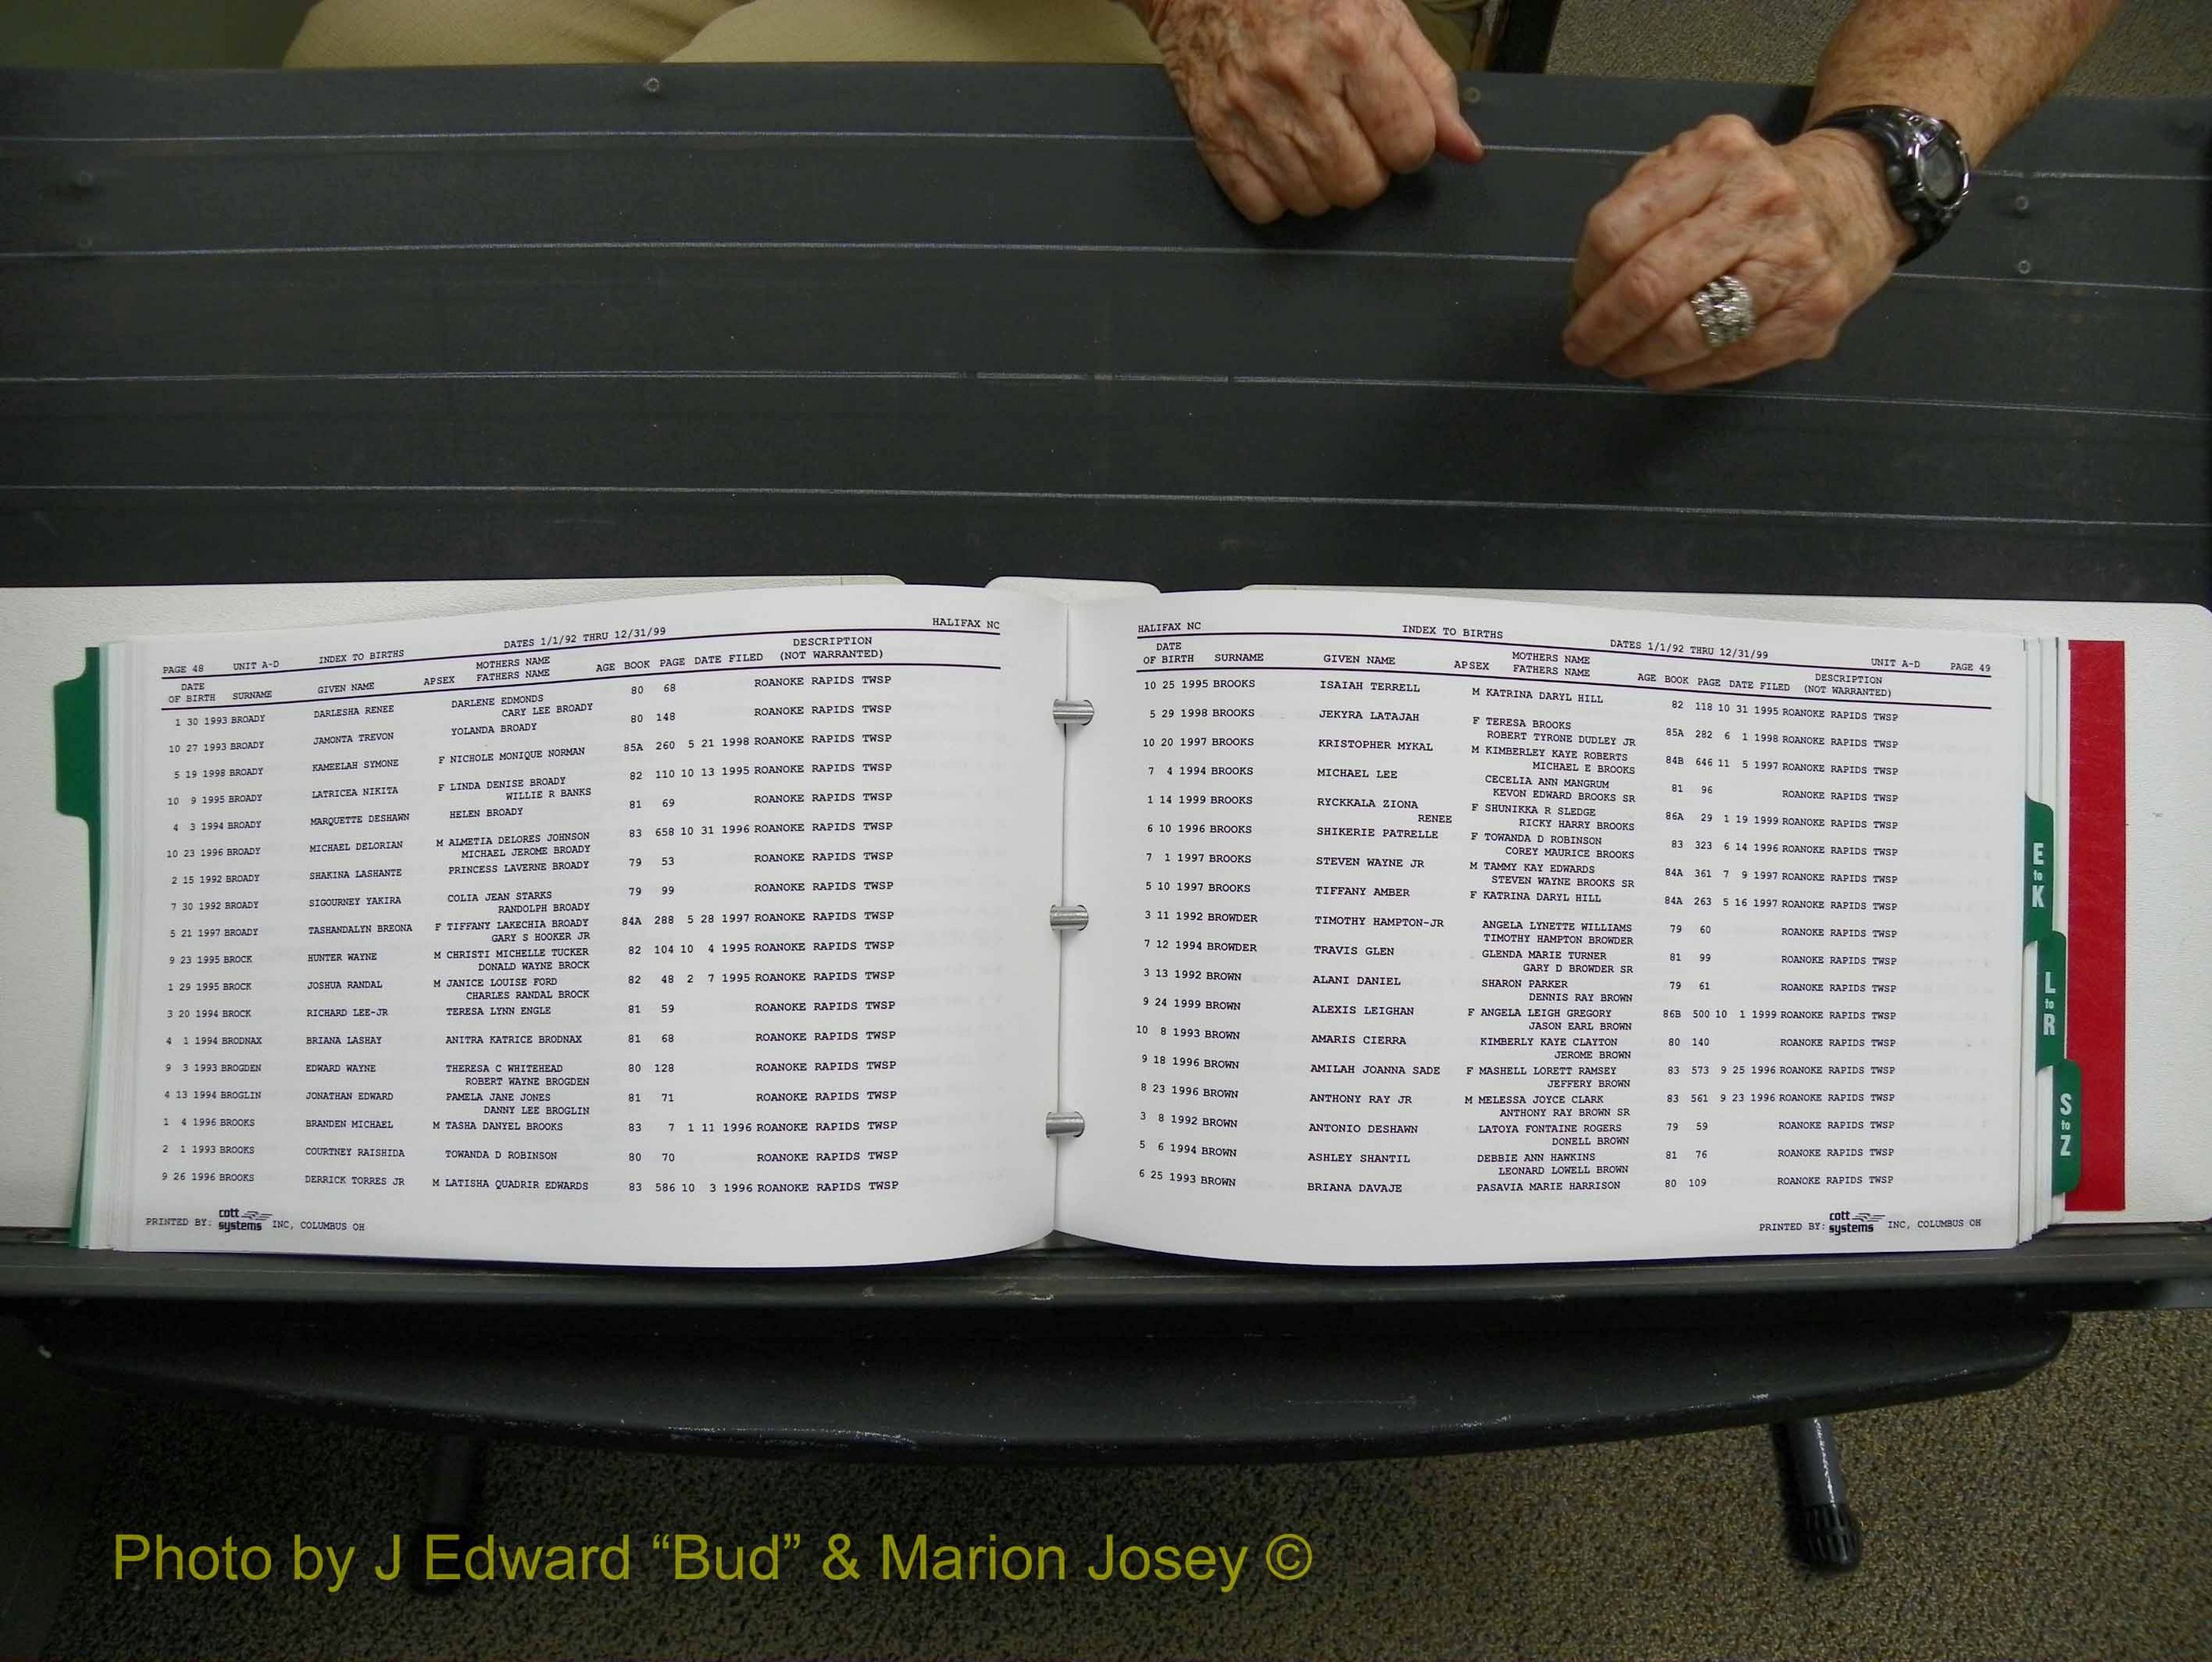 HALIFAX NC
PAGE 48 UNIT A-D INDEX TO BIRTHS DATES 1/1/92 THRU 12/31/99
DATE MOTHERS NAME DESCRIPTION
OF BIRTH SURNAME GIVEN NAME APSEX FATHERS NAME AGE BOOK PAGE DATE FILED (NOT WARRANTED)
1 30 1993 BROADY DARLESHA RENEE DARLENE EDMONDS 80 68 ROANOKE RAPIDS TWSP
CARY LEE BROADY
10 27 1993 BROADY JAMONTA TREVON YOLANDA BROADY 80 148 ROANOKE RAPIDS TWSP
5 19 1998 BROADY KAMEELAH SYMONE F NICHOLE MONIQUE NORMAN 85A 260 5 21 1998 ROANOKE RAPIDS TWSP
10 9 1995 BROADY LATRICEA NIKITA F LINDA DENISE BROADY 82 110 10 13 1995 ROANOKE RAPIDS TWSP
WILLIE R BANKS
4 3 1994 BROADY MARQUETTE DESHAWN HELEN BROADY 81 69 ROANOKE RAPIDS TWSP
10 23 1996 BROADY MICHAEL DELORIAN M ALMETIA DELORES JOHNSON 83 658 10 31 1996 ROANOKE RAPIDS TWSP
MICHAEL JEROME BROADY
2 15 1992 BROADY SHAKINA LASHANTE PRINCESS LAVERNE BROADY 79 53 ROANOKE RAPIDS TWSP
7 30 1992 BROADY SIGOURNEY YAKIRA COLIA JEAN STARKS 79 99 ROANOKE RAPIDS TWSP
RANDOLPH BROADY
5 21 1997 BROADY TASHANDALYN BREONA F TIFFANY LAKECHIA BROADY 84A 288 5 28 1997 ROANOKE RAPIDS TWSP
GARY S HOOKER JR
9 23 1995 BROCK HUNTER WAYNE M CHRISTI MICHELLE TUCKER 82 104 10 4 1995 ROANOKE RAPIDS TWSP
DONALD WAYNE BROCK
1 29 1995 BROCK JOSHUA RANDAL M JANICE LOUISE FORD 82 48 2 7 1995 ROANOKE RAPIDS TWSP
CHARLES RANDAL BROCK
3 20 1994 BROCK RICHARD LEE-JR TERESA LYNN ENGLE 81 59 ROANOKE RAPIDS TWSP
4 1 1994 BRODNAX BRIANA LASHAY ANITRA KATRICE BRODNAX 81 68 ROANOKE RAPIDS TWSP
9 3 1993 BROGDEN EDWARD WAYNE THERESA C WHITEHEAD 80 128 ROANOKE RAPIDS TWSP
ROBERT WAYNE BROGDEN
4 13 1994 BROGLIN JONATHAN EDWARD PAMELA JANE JONES 81 71 ROANOKE RAPIDS TWSP
DANNY LEE BROGLIN
1 4 1996 BROOKS BRANDEN MICHAEL M TASHA DANYEL BROOKS 83 7 1 11 1996 ROANOKE RAPIDS TWSP
2 1 1993 BROOKS COURTNEY RAISHIDA TOWANDA D ROBINSON 80 70 ROANOKE RAPIDS TWSP
9 26 1996 BROOKS DERRICK TORRES JR M LATISHA QUADRIR EDWARDS 83 586 10 3 1996 ROANOKE RAPIDS TWSP
PRINTED BY: cott systems INC, COLUMBUS OH
HALIFAX NC INDEX TO BIRTHS DATES 1/1/92 THRU 12/31/99 UNIT A-D PAGE 49
DATE MOTHERS NAME DESCRIPTION
OF BIRTH SURNAME GIVEN NAME APSEX FATHERS NAME AGE BOOK PAGE DATE FILED (NOT WARRANTED)
10 25 1995 BROOKS ISAIAH TERRELL M KATRINA DARYL HILL 82 118 10 31 1995 ROANOKE RAPIDS TWSP
5 29 1998 BROOKS JEKYRA LATAJAH F TERESA BROOKS 85A 282 6 1 1998 ROANOKE RAPIDS TWSP
ROBERT TYRONE DUDLEY JR
10 20 1997 BROOKS KRISTOPHER MYKAL M KIMBERLEY KAYE ROBERTS 84B 646 11 5 1997 ROANOKE RAPIDS TWSP
MICHAEL E BROOKS
7 4 1994 BROOKS MICHAEL LEE CECELIA ANN MANGRUM 81 96 ROANOKE RAPIDS TWSP
KEVON EDWARD BROOKS SR
1 14 1999 BROOKS RYCKKALA ZIONA F SHUNIKKA R SLEDGE 86A 29 1 19 1999 ROANOKE RAPIDS TWSP
RENEE RICKY HARRY BROOKS
6 10 1996 BROOKS SHIKERIE PATRELLE F TOWANDA D ROBINSON 83 323 6 14 1996 ROANOKE RAPIDS TWSP
COREY MAURICE BROOKS
7 1 1997 BROOKS STEVEN WAYNE JR M TAMMY KAY EDWARDS 84A 361 7 9 1997 ROANOKE RAPIDS TWSP
STEVEN WAYNE BROOKS SR
5 10 1997 BROOKS TIFFANY AMBER F KATRINA DARYL HILL 84A 263 5 16 1997 ROANOKE RAPIDS TWSP
3 11 1992 BROWDER TIMOTHY HAMPTON-JR ANGELA LYNETTE WILLIAMS 79 60 ROANOKE RAPIDS TWSP
TIMOTHY HAMPTON BROWDER
7 12 1994 BROWDER TRAVIS GLEN GLENDA MARIE TURNER 81 99 ROANOKE RAPIDS TWSP
GARY D BROWDER SR
3 13 1992 BROWN ALANI DANIEL SHARON PARKER 79 61 ROANOKE RAPIDS TWSP
DENNIS RAY BROWN
9 24 1999 BROWN ALEXIS LEIGHAN F ANGELA LEIGH GREGORY 86B 500 10 1 1999 ROANOKE RAPIDS TWSP
JASON EARL BROWN
10 8 1993 BROWN AMARIS CIERRA KIMBERLY KAYE CLAYTON 80 140 ROANOKE RAPIDS TWSP
JEROME BROWN
9 18 1996 BROWN AMILAH JOANNA SADE F MASHELL LORETT RAMSEY 83 573 9 25 1996 ROANOKE RAPIDS TWSP
JEFFERY BROWN
8 23 1996 BROWN ANTHONY RAY JR M MELESSA JOYCE CLARK 83 561 9 23 1996 ROANOKE RAPIDS TWSP
ANTHONY RAY BROWN SR
3 8 1992 BROWN ANTONIO DESHAWN LATOYA FONTAINE ROGERS 79 59 ROANOKE RAPIDS TWSP
DONELL BROWN
5 6 1994 BROWN ASHLEY SHANTIL DEBBIE ANN HAWKINS 81 76 ROANOKE RAPIDS TWSP
LEONARD LOWELL BROWN
6 25 1993 BROWN BRIANA DAVAJE PASAVIA MARIE HARRISON 80 109 ROANOKE RAPIDS TWSP
PRINTED BY: cott systems INC, COLUMBUS OH
E to K
L to R
S to Z
Photo by J Edward “Bud” & Marion Josey ©